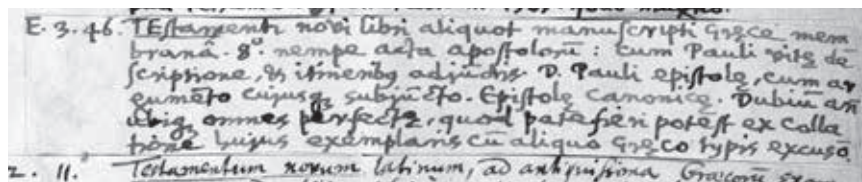 E. 3. 46. TEstamenti novi libri aliquot manuſcripti Gręcè mem
branâ. 8º. nempe acta apoſtolorũ : cum Pauli vitę dē
ſcriptione, & itineribꝰ adjũctis. D. Pauli epiſtolę, cum ar
gumēto cujusqꝫ subjũcto. Epiſtolę canonicę. Dubiũ an
ubiqꝫ omnes perfectę, quod patefieri poteſt ex colla
tione hujus exemplaris cũ aliquo Gręco typis excuso
2. 11. Testamentum novum latinum, ad antiquissima Gręcorũ